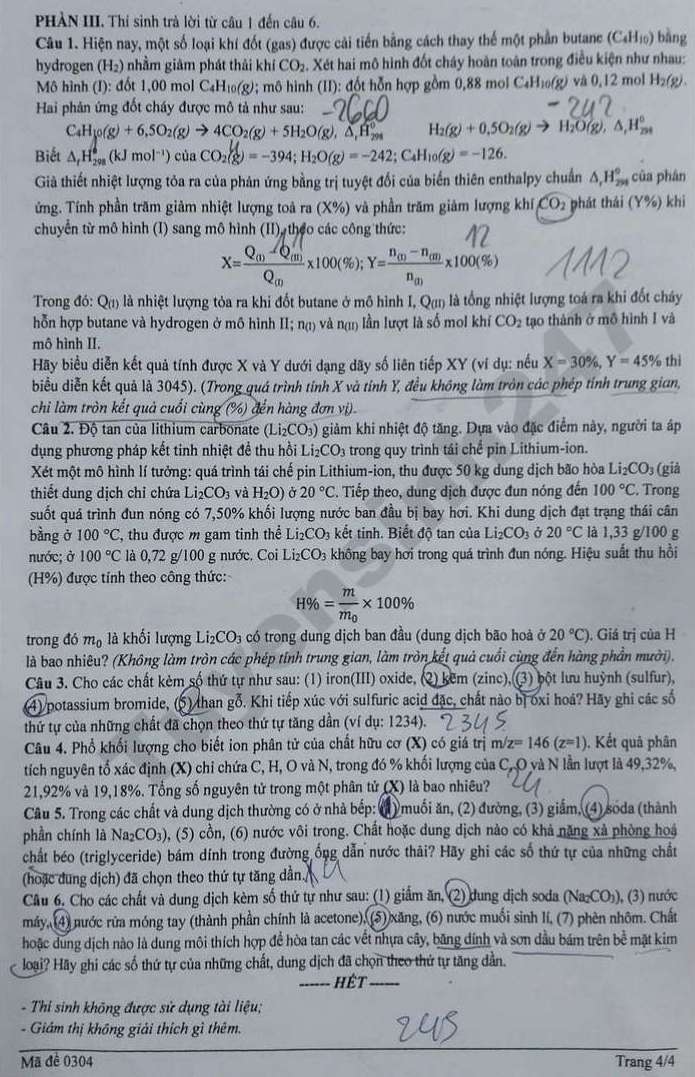 PHẦN III. Thí sinh trả lời từ câu 1 đến câu 6.
Câu 1. Hiện nay, một số loại khí đốt (gas) được cải tiến bằng cách thay thế một phần butane (C₄H₁₀) bằng
hydrogen (H₂) nhằm giảm phát thải khí CO₂. Xét hai mô hình đốt cháy hoàn toàn trong điều kiện như nhau:
Mô hình (I): đốt 1,00 mol C₄H₁₀(g); mô hình (II): đốt hỗn hợp gồm 0,88 mol C₄H₁₀(g) và 0,12 mol H₂(g).
Hai phản ứng đốt cháy được mô tả như sau: -2660 -242
C₄H₁₀(g) + 6,5O₂(g) → 4CO₂(g) + 5H₂O(g), ΔᵣH⁰₂₉₈ H₂(g) + 0,5O₂(g) → H₂O(g), ΔᵣH⁰₂₉₈
Biết ΔfH⁰₂₉₈ (kJ mol⁻¹) của CO₂(g) = −394; H₂O(g) = −242; C₄H₁₀(g) = −126.
Giả thiết nhiệt lượng tỏa ra của phản ứng bằng trị tuyệt đối của biến thiên enthalpy chuẩn ΔᵣH⁰₂₉₈ của phản
ứng. Tính phần trăm giảm nhiệt lượng toả ra (X%) và phần trăm giảm lượng khí CO₂ phát thải (Y%) khi
chuyển từ mô hình (I) sang mô hình (II) theo các công thức: 12
X= (Q(I) − Q(II))/Q(I) x100(%); Y= (n(I) − n(II))/n(I) x100(%) 11
1112
Trong đó: Q(I) là nhiệt lượng tỏa ra khi đốt butane ở mô hình I, Q(II) là tổng nhiệt lượng toả ra khi đốt cháy
hỗn hợp butane và hydrogen ở mô hình II; n(I) và n(II) lần lượt là số mol khí CO₂ tạo thành ở mô hình I và
mô hình II.
Hãy biểu diễn kết quả tính được X và Y dưới dạng dãy số liên tiếp XY (ví dụ: nếu X = 30%, Y = 45% thì
biểu diễn kết quả là 3045). (Trong quá trình tính X và tính Y, đều không làm tròn các phép tính trung gian,
chỉ làm tròn kết quả cuối cùng (%) đến hàng đơn vị).
Câu 2. Độ tan của lithium carbonate (Li₂CO₃) giảm khi nhiệt độ tăng. Dựa vào đặc điểm này, người ta áp
dụng phương pháp kết tinh nhiệt để thu hồi Li₂CO₃ trong quy trình tái chế pin Lithium-ion.
Xét một mô hình lí tưởng: quá trình tái chế pin Lithium-ion, thu được 50 kg dung dịch bão hòa Li₂CO₃ (giả
thiết dung dịch chỉ chứa Li₂CO₃ và H₂O) ở 20 °C. Tiếp theo, dung dịch được đun nóng đến 100 °C. Trong
suốt quá trình đun nóng có 7,50% khối lượng nước ban đầu bị bay hơi. Khi dung dịch đạt trạng thái cân
bằng ở 100 °C, thu được m gam tinh thể Li₂CO₃ kết tinh. Biết độ tan của Li₂CO₃ ở 20 °C là 1,33 g/100 g
nước; ở 100 °C là 0,72 g/100 g nước. Coi Li₂CO₃ không bay hơi trong quá trình đun nóng. Hiệu suất thu hồi
(H%) được tính theo công thức:
H% = m/m₀ × 100%
trong đó m₀ là khối lượng Li₂CO₃ có trong dung dịch ban đầu (dung dịch bão hoà ở 20 °C). Giá trị của H
là bao nhiêu? (Không làm tròn các phép tính trung gian, làm tròn kết quả cuối cùng đến hàng phần mười).
Câu 3. Cho các chất kèm số thứ tự như sau: (1) iron(III) oxide, (2) kẽm (zinc), (3) bột lưu huỳnh (sulfur),
(4) potassium bromide, (5) than gỗ. Khi tiếp xúc với sulfuric acid đặc, chất nào bị oxi hoá? Hãy ghi các số
thứ tự của những chất đã chọn theo thứ tự tăng dần (ví dụ: 1234). 2345
Câu 4. Phổ khối lượng cho biết ion phân tử của chất hữu cơ (X) có giá trị m/z= 146 (z=1). Kết quả phân
tích nguyên tố xác định (X) chỉ chứa C, H, O và N, trong đó % khối lượng của C, O và N lần lượt là 49,32%,
21,92% và 19,18%. Tổng số nguyên tử trong một phân tử (X) là bao nhiêu? 24
Câu 5. Trong các chất và dung dịch thường có ở nhà bếp: (1) muối ăn, (2) đường, (3) giấm, (4) soda (thành
phần chính là Na₂CO₃), (5) cồn, (6) nước vôi trong. Chất hoặc dung dịch nào có khả năng xà phòng hoá
chất béo (triglyceride) bám dính trong đường ống dẫn nước thải? Hãy ghi các số thứ tự của những chất
(hoặc dung dịch) đã chọn theo thứ tự tăng dần.
Câu 6. Cho các chất và dung dịch kèm số thứ tự như sau: (1) giấm ăn, (2) dung dịch soda (Na₂CO₃), (3) nước
máy, (4) nước rửa móng tay (thành phần chính là acetone), (5) xăng, (6) nước muối sinh lí, (7) phèn nhôm. Chất
hoặc dung dịch nào là dung môi thích hợp để hòa tan các vết nhựa cây, băng dính và sơn dầu bám trên bề mặt kim
loại? Hãy ghi các số thứ tự của những chất, dung dịch đã chọn theo thứ tự tăng dần.
------ HẾT ------
- Thí sinh không được sử dụng tài liệu;
- Giám thị không giải thích gì thêm.
245
Mã đề 0304 Trang 4/4